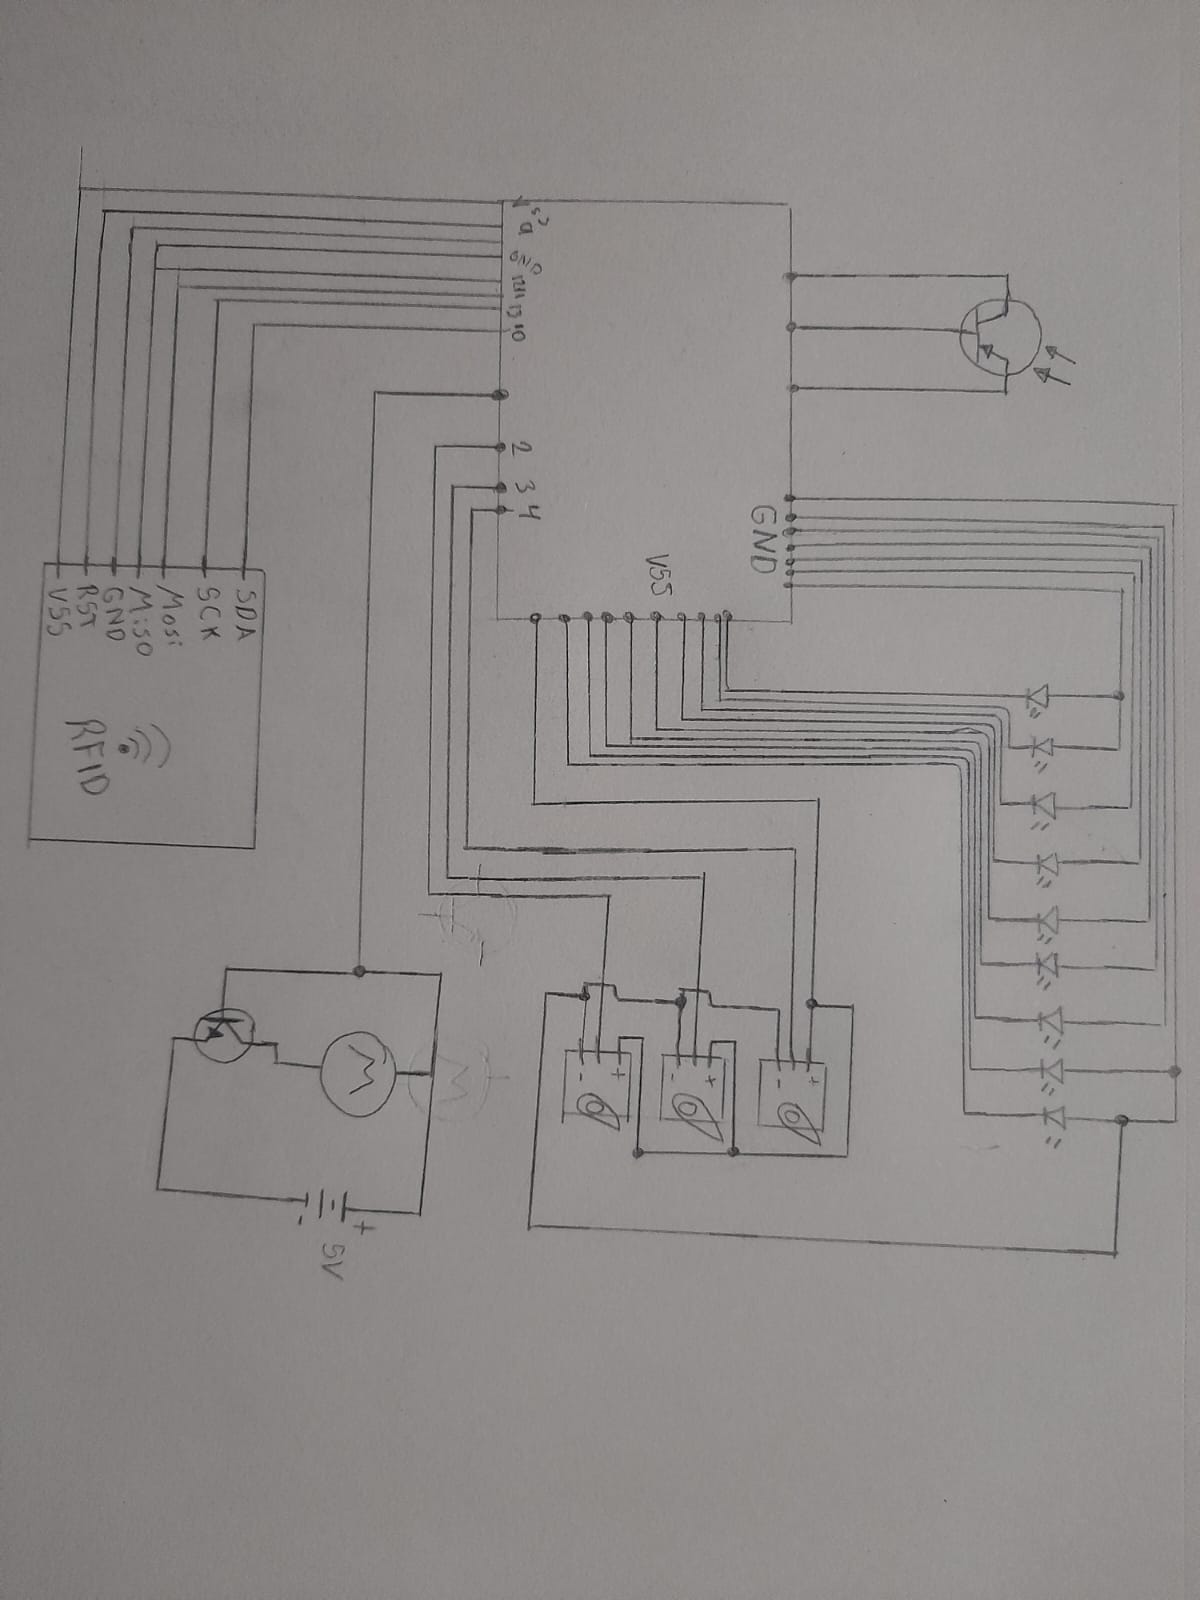 GND
VSS
+
-
+
-
+
-
GND 12 11 13 10
2 3 4
M
+
5V
-
SDA
SCK
Mosi
MiSO
GND
RST
VSS
RFID